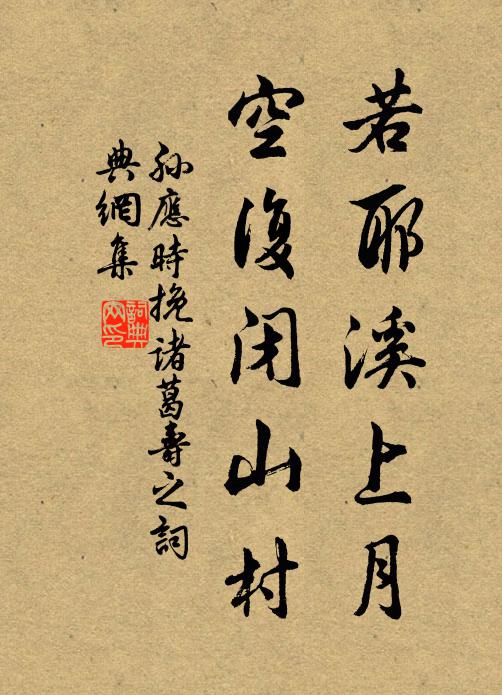 若耶溪上月
空復闭山村
孙應時挽諸葛壽之詞
典網集
詞典網印